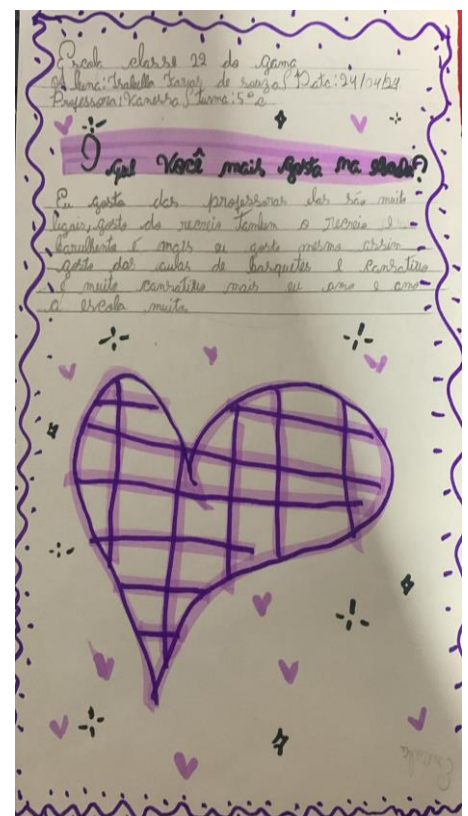 Escola classe 22 do gama
Aluna: Isabella Farias de souza Data: 24/04/24
Professora: Vanessa Turma: 5º
O que Você mais gosta na escola?
Eu gosto das professoras elas são muito
legais, gosto do recreio Tambem o recreio é
barulhento é mais eu gosto mesmo assim
gosto das aulas de basquetes é cansativo
é muito cansativo mais eu amo e amo
a escola muito.